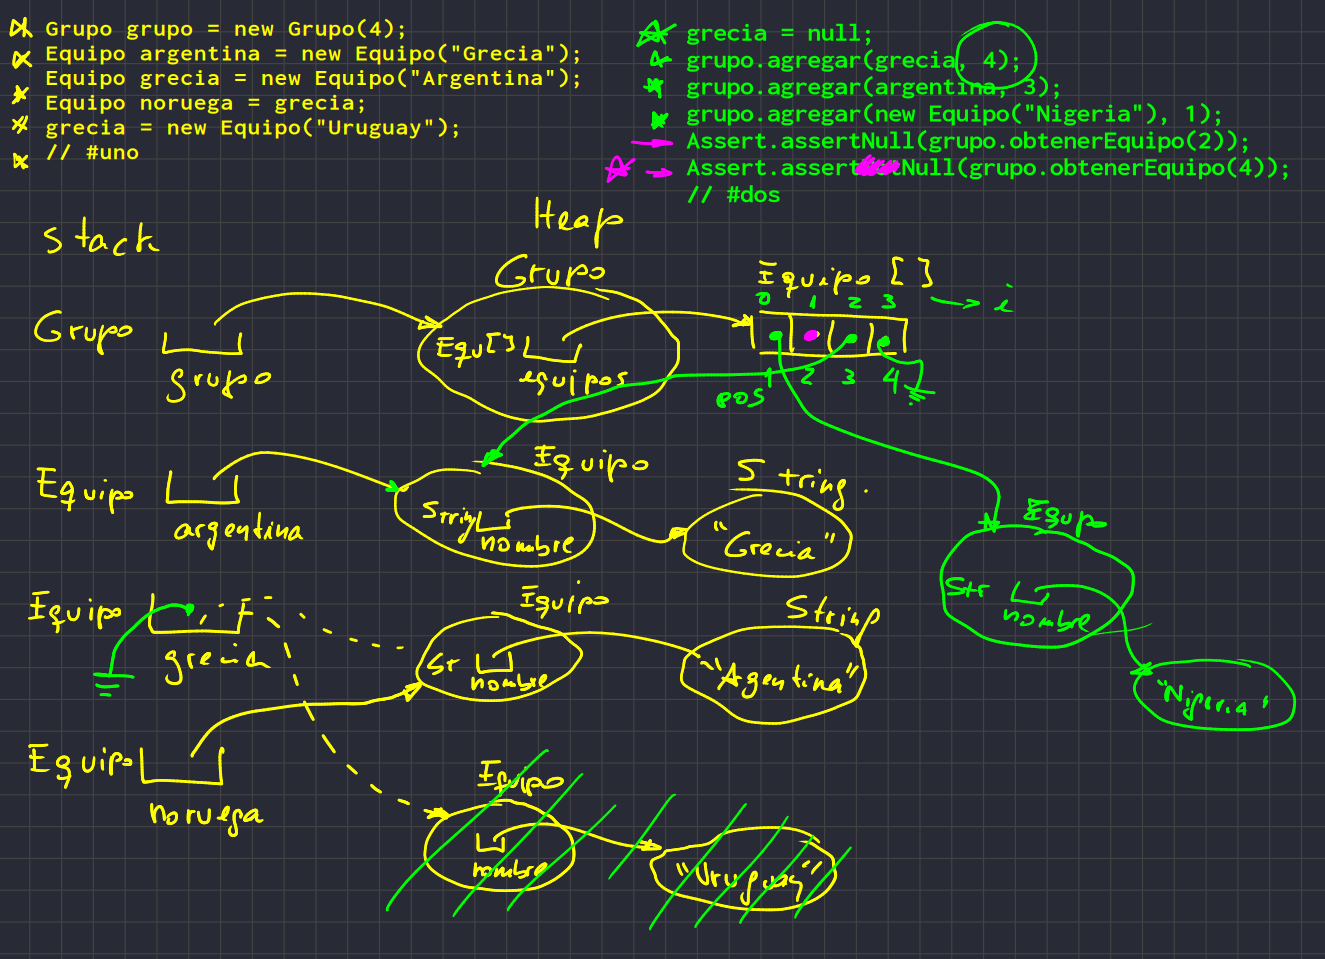 Grupo grupo = new Grupo(4);
Equipo argentina = new Equipo("Grecia");
Equipo grecia = new Equipo("Argentina");
Equipo noruega = grecia;
grecia = new Equipo("Uruguay");
// #uno
grecia = null;
grupo.agregar(grecia, 4);
grupo.agregar(argentina, 3);
grupo.agregar(new Equipo("Nigeria"), 1);
Assert.assertNull(grupo.obtenerEquipo(2));
Assert.assert Null(grupo.obtenerEquipo(4));
// #dos
Stack
Heap
Grupo
Equipo []
0 1 2 3 i
Grupo
grupo
Equ[]
equipos
pos 1 2 3 4
Equipo
argentina
Equipo
String
nombre
String.
"Grecia"
Equipo
Str
nombre
"Nigeria"
Equipo
grecia
Equipo
Str
nombre
String
"Agentina"
Equipo
noruega
Equipo
nombre
"Uruguay"